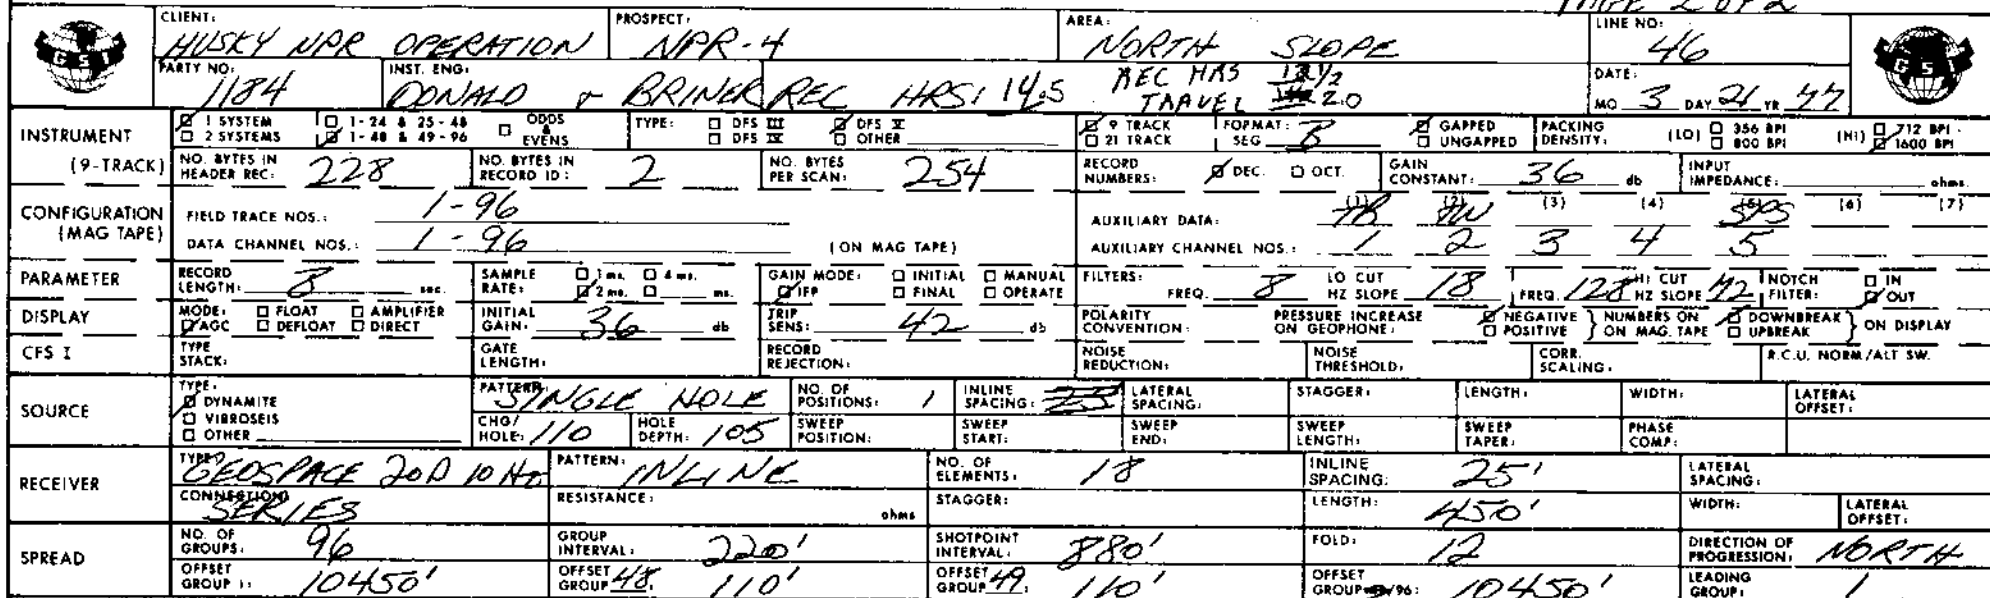 PAGE 2 of 2
CLIENT: HUSKY NPR OPERATION PROSPECT: NPR-4 AREA: NORTH SLOPE LINE NO: 46
GSI
PARTY NO: 1184 INST. ENG: DONALD & BRINER REC HRS: 14.5 REC HRS 12 1/2 DATE:
TRAVEL 2.0 MO 3 DAY 21 YR 77
GSI
INSTRUMENT 1 SYSTEM 1-24 & 25-48 ODDS & EVENS TYPE: DFS III DFS V 9 TRACK FORMAT: B GAPPED PACKING DENSITY: (LO) 356 BPI (HI) 712 BPI
2 SYSTEMS 1-48 & 49-96 DFS IV OTHER 21 TRACK SEG UNGAPPED 800 BPI 1600 BPI
(9-TRACK) NO. BYTES IN HEADER REC: 228 NO. BYTES IN RECORD ID: 2 NO. BYTES PER SCAN: 254 RECORD NUMBERS: DEC. OCT. GAIN CONSTANT: 36 db INPUT IMPEDANCE: ohms.
CONFIGURATION (MAG TAPE) FIELD TRACE NOS.: 1-96 AUXILIARY DATA: (1) TB (2) TW (3) (4) (5) SPS (6) (7)
DATA CHANNEL NOS.: 1-96 (ON MAG TAPE) AUXILIARY CHANNEL NOS.: 1 2 3 4 5
PARAMETER RECORD LENGTH: 8 sec. SAMPLE RATE: 1 ms. 4 ms. 2 ms. ms. GAIN MODE: INITIAL MANUAL IFP FINAL OPERATE FILTERS: FREQ. 8 LO CUT HZ SLOPE 18 FREQ. 128 HI CUT HZ SLOPE 72 NOTCH FILTER: IN OUT
DISPLAY MODE: FLOAT AMPLIFIER AGC DEFLOAT DIRECT INITIAL GAIN: 36 db TRIP SENS: 42 db POLARITY CONVENTION: PRESSURE INCREASE ON GEOPHONE: NEGATIVE POSITIVE } NUMBERS ON ON MAG. TAPE DOWNBREAK UPBREAK } ON DISPLAY
CFS I TYPE STACK: GATE LENGTH: RECORD REJECTION: NOISE REDUCTION: NOISE THRESHOLD: CORR. SCALING: R.C.U. NORM/ALT SW.
SOURCE TYPE: DYNAMITE VIBROSEIS OTHER PATTERN: SINGLE HOLE NO. OF POSITIONS: 1 INLINE SPACING: LATERAL SPACING: STAGGER: LENGTH: WIDTH: LATERAL OFFSET:
CHG/HOLE: 110 HOLE DEPTH: 105 SWEEP POSITION: SWEEP START: SWEEP END: SWEEP LENGTH: SWEEP TAPER: PHASE COMP:
RECEIVER TYPE: GEOSPACE 20D 10 Hz PATTERN: INLINE NO. OF ELEMENTS: 18 INLINE SPACING: 25' LATERAL SPACING:
CONNECTION: SERIES RESISTANCE: ohms STAGGER: LENGTH: 450' WIDTH: LATERAL OFFSET:
SPREAD NO. OF GROUPS: 96 GROUP INTERVAL: 220' SHOTPOINT INTERVAL: 880' FOLD: 12 DIRECTION OF PROGRESSION: NORTH
OFFSET GROUP 1: 10450' OFFSET GROUP 48: 110' OFFSET GROUP 49: 110' OFFSET GROUP 96: 10450' LEADING GROUP: 1